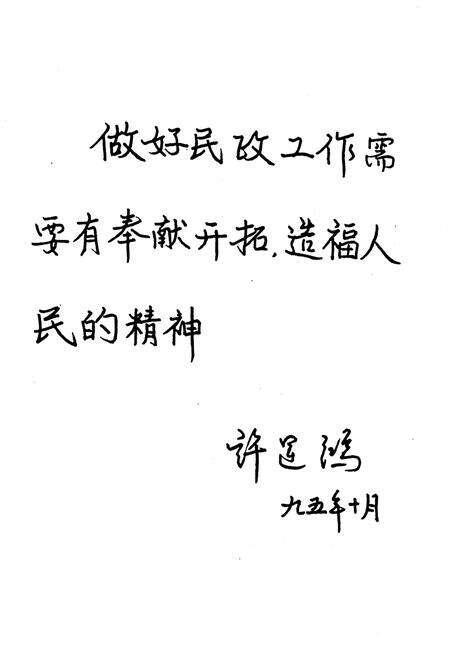 做好民政工作需
要有奉献开拓,造福人
民的精神
许运鸿
九五年十月